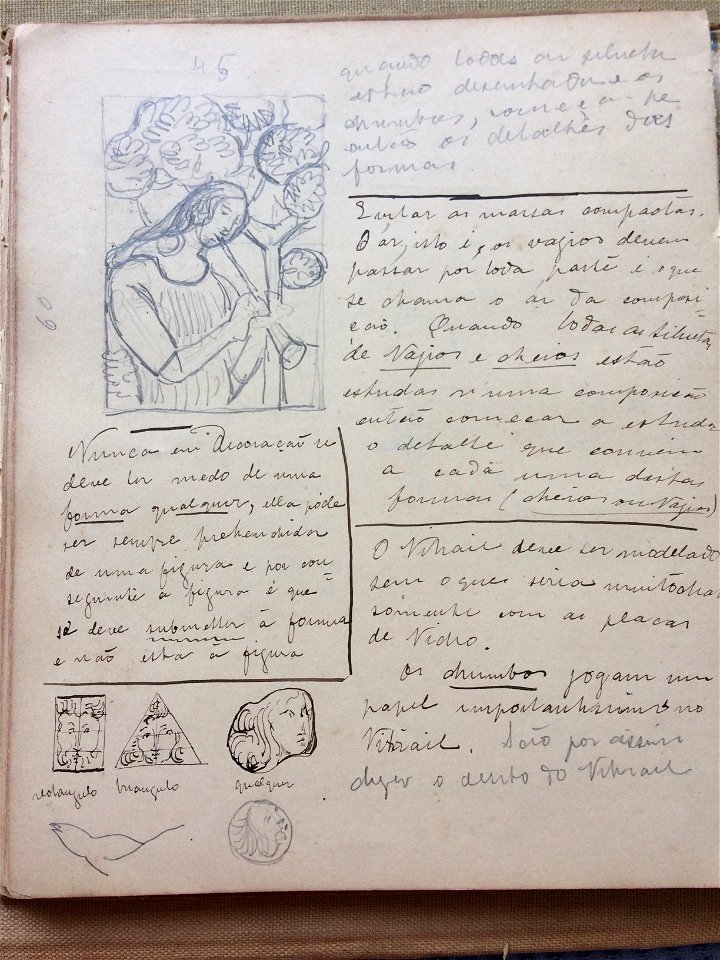 45
60
quando todas as silhuetas
estão desenhadas e os
chumbos, começa-se
então os detalhes das
formas
Evitar as massas compactas.
O ar, isto é, os vazios devem
passar por toda parte é o que
se chama o ar da composi-
ção. Quando todas as silhuetas
de Vazios e cheios estão
estudas n'uma composição
então começar a estudar
o detalhe que convem
a cada uma destas
formas (cheios ou Vazios)
Nunca em Decoração se
deve ter medo de uma
forma qualquer, ella póde
ser sempre prehenchidor
de uma figura e por con
seguinte a figura é que
se deve submetter á forma
e não esta á figura
O Vitrail deve ser modelado
sem o que seria muito
somente com as placas
de Vidro.
Os chumbos jogam um
papel importantissimo no
Vitrail. São por assim
dizer o do Vitrail
rectangulo triangulo qualquer